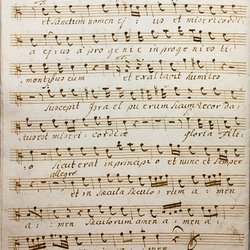 et sanctum nomen ejus et misericordi
a ejus a progenie in progenies ti
mentibus eum et exaltavit humiles
Suscepit Israel puerum suum recorda
tus est misericordiae gloria Patri
o sicut erat in principio et nunc et Semper
allegro
et in Saecula Saeculorum amen
amen Saeculorum amen amen a
men